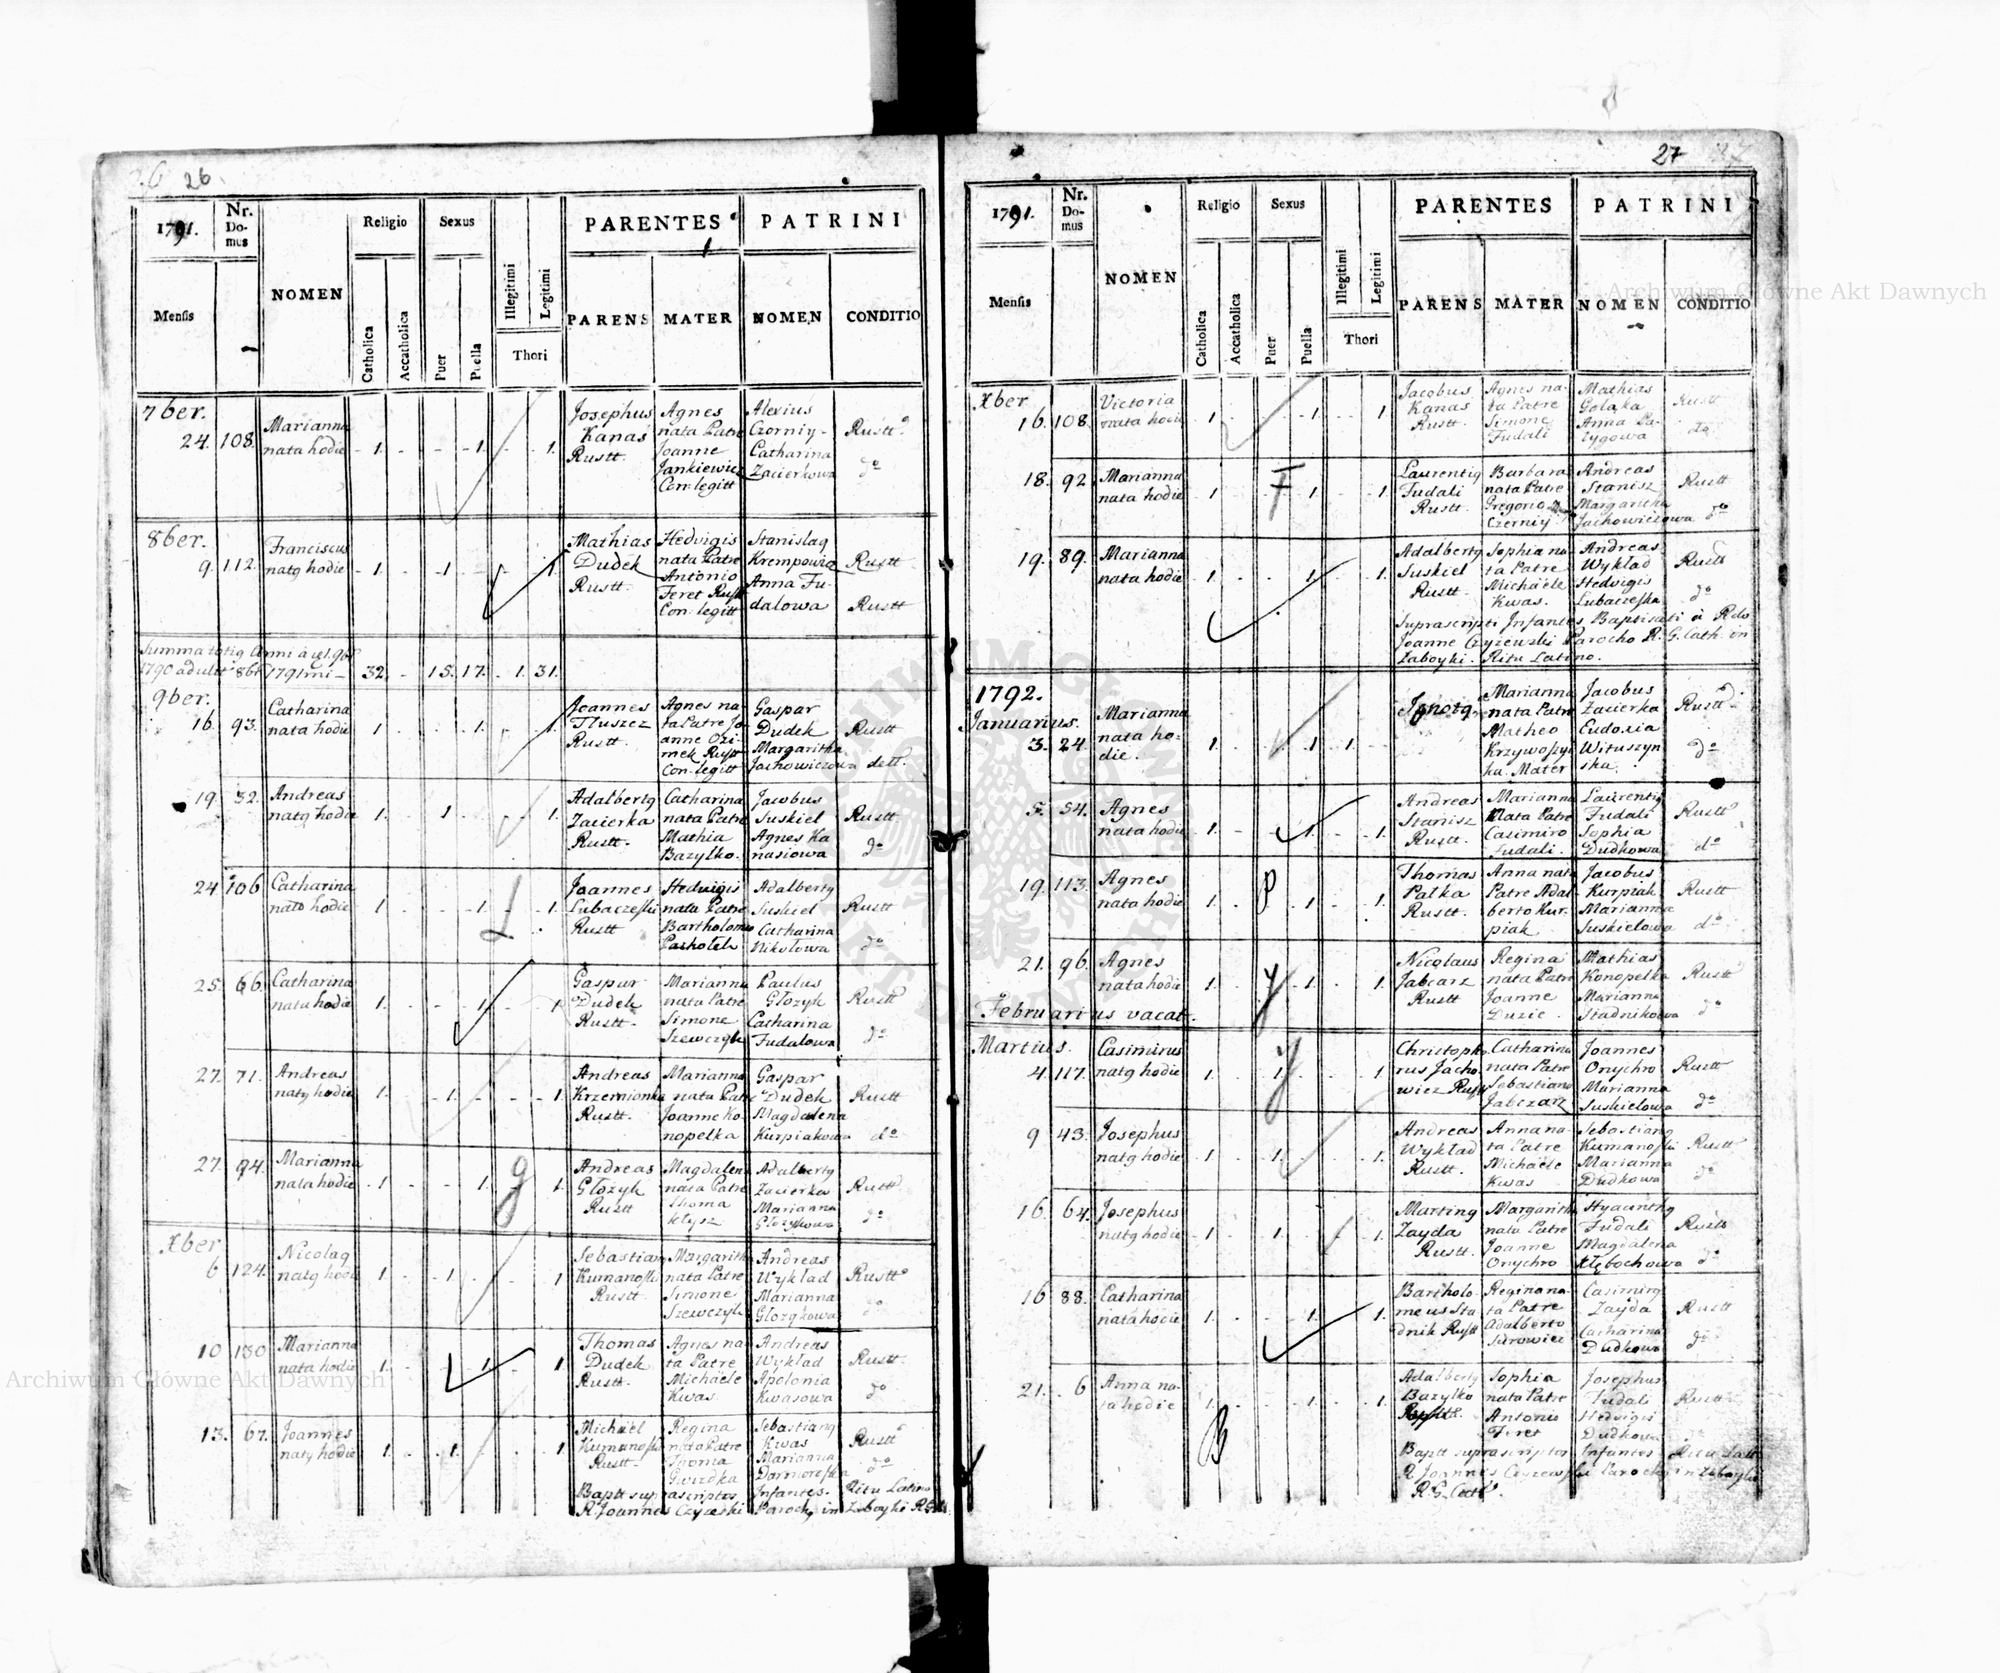 26 26.
1791.
Nr. Domus
NOMEN
Religio
Sexus
PARENTES
PATRINI
Mensis
Catholica
Accatholica
Puer
Puella
Illegitimi
Legitimi
Thori
PARENS
MATER
NOMEN
CONDITIO
7ber.
24. 108. Marianna nata hodie 1. 1. 1.
Josephus Kanas Rustt.
Agnes nata Patre Joanne Jankiewicz Con: legitt
Alexius Czorniy Catharina Zacierkowa
Rustt do
8ber.
9. 112. Franciscus natg hodie 1. 1. 1.
Mathias Dudek Rustt.
Hedvigis nata Patre Antonio Feret Rustt Con: legitt
Stanislag Krempowicz Anna Fudalowa
Rustt Rustt
Summa totig Anni
1790 1791 32. 15. 17. 1. 31.
9ber.
16. 93. Catharina nata hodie 1. 1. 1.
Joannes Tluszcz Rustt.
Agnes nata Patre Joanne Ozimek Rustt Con: legitt
Gaspar Dudek Margaritha Jachowiczowa
Rustt dett.
19. 32. Andreas natg hodie 1. 1. 1.
Adalbertg Zacierka Rustt.
Catharina nata Patre Mathia Bazylko.
Jacobus Suskiel Agnes Kanasiowa
Rustt do
24 106 Catharina nata hodie 1. 1. 1.
Joannes Lubaczefki Rustt
Hedvigis nata Patre Bartholomeo
Adalbertg Suskiel Catharina Nikołowa
Rustt do
25. 66. Catharina nata hodie 1. 1. 1.
Gaspar Dudek Rustt.
Marianna nata Patre Simone Szewczyk
Paulus Głozyk Catharina Fudalowa
Rustt do
27. 71. Andreas natg hodie 1. 1. 1.
Andreas Krzemionka Rustt.
Marianna nata Patre Joanne Konopelka
Gaspar Dudek Magdalena Kurpiakowa
Rustt do
27. 94. Marianna nata hodie 1. 1. 1.
Andreas Głozyk Rustt
Magdalena nata Patre Thoma Kłysz
Adalbertg Zacierka Marianna Głozykowa
Rustt do
Xber
6 124. Nicolag natg hodie 1. 1. 1
Sebastiang Kumanofki Rustt.
Margaritha nata Patre Simone Szewczyk
Andreas Wykład Marianna Głozykowa
Rustt do
10 130 Marianna nata hodie 1. 1. 1
Thomas Dudek Rustt.
Agnes nata Patre Michaele Kwas.
Andreas Wykład Apolonia Kwasowa
Rustt. do
13. 67. Joannes natg hodie 1. 1. 1
Michael Kumanofki Rustt.
Regina nata Patre Thoma Gwizdka
Sebastiang Kwas Marianna
Rustt do
Baptt suprascriptos Infantes. Ritu Latino
R. Joannes Czyzeski Parochg in Zaboyki
27
1791.
Nr. Domus
NOMEN
Religio
Sexus
PARENTES
PATRINI
Mensis
Catholica
Accatholica
Puer
Puella
Illegitimi
Legitimi
Thori
PARENS
MATER
NOMEN
CONDITIO
Xber
16. 108. Victoria nata hodie 1. 1. 1.
Jacobus Kanas Rustt.
Agnes nata Patre Simone Fudali
Mathias Golaka Anna
Rustt do
18. 92. Marianna nata hodie 1. F 1. 1.
Laurentig Fudali Rustt.
Barbara nata Patre Gregorio Czerniy
Andreas Stanisz Margaritha Jachowiczowa
Rustt do
19. 89. Marianna nata hodie 1. 1. 1.
Adalbertg Suskiel Rustt.
Sophia nata Patre Michaele Kwas.
Andreas Wykład Hedvigis Lubaczefka
Rustt do
Suprascripti Infantes Baptisati à Rdo
Joanne Czyżewski Parocho R. G. Cath. in
Zaboyki. Ritu Latino.
1792.
Januarius.
3. 24. Marianna nata hodie. 1. 1. 1.
Ignotg
Marianna nata Patre Matheo Krzywoszyika. Mater
Jacobus Zacierka Eudoxia Wituszynska.
Rustt. do
5. 54. Agnes nata hodie 1. 1. 1.
Andreas Stanisz Rustt.
Marianna Nata Patre Casimiro Fudali.
Laurentig Fudali Sophia Dudkowa
Rustt do
19. 113. Agnes nata hodie 1. P 1. 1.
Thomas Pałka Rustt.
Anna nata Patre Adalberto Kurpiak
Jacobus Kurpiak Marianna Suskielowa
Rustt do
21. 96. Agnes nata hodie 1. 1. 1.
Nicolaus Jabczarz Rustt
Regina nata Patre Joanne Guzic.
Mathias Konopelka Marianna Stadnikowa
Rustt do
Februarius vacat.
Martius.
4. 117. Casimirus natg hodie 1. 1. 1.
Christophorus Jachowicz Rustt
Catharina nata Patre Sebastiano Jabczarz
Joannes Onychro Marianna Suskielowa
Rustt do
9 43. Josephus natg hodie 1. 1. 1.
Andreas Wykład Rustt.
Anna nata Patre Michaele Kwas
Sebastiang Kumanofki Marianna Dudkowa
Rustt do
16. 64. Josephus natg hodie 1. 1. 1.
Marting Zayda Rustt.
Margaritha nata Patre Joanne Onychro
Hyacinthg Fudali Magdalena Kłębochowa
Rustt do
16 88. Catharina nata hodie 1. 1. 1.
Bartholomeus Stadnik Rustt
Regina nata Patre Adalberto Surowiec
Casimirg Zayda Catharina Dudkowa
Rustt do
21. 6 Anna nata hodie 1. 1. 1.
B
Adalbertg Bazylko Rustt.
Sophia nata Patre Antonio Feret
Josephus Fudali Hedvigis Dudkowa
Rustt do
Baptt suprascriptos Infantes Ritu Latt
R Joannes Czyzewski Parochg in Zaboyki
R. G. Catt.
Archiwum Główne Akt Dawnych
Archiwum Główne Akt Dawnych
ARCHIWUM GŁÓWNE AKT DAWNYCH